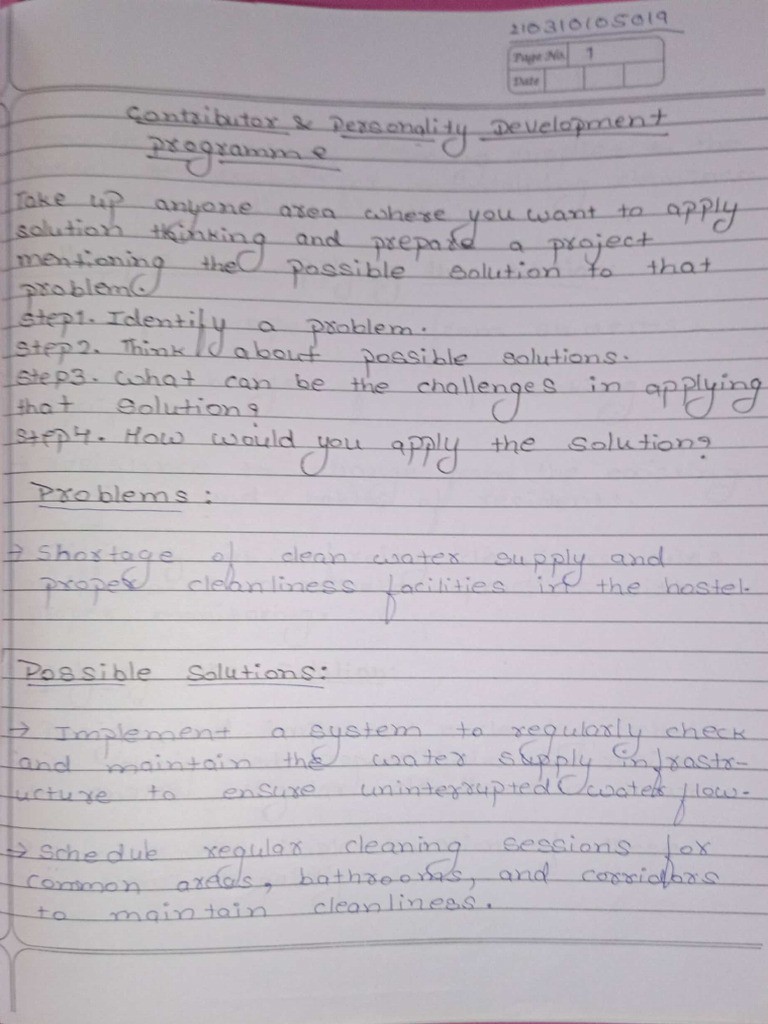 210310105019
Page No. 1
Date
Contributor & Personality Development
Programme
Take up anyone area where you want to apply
solution thinking and prepare a project
mentioning the possible solution to that
problem.
Step1. Identify a problem.
Step2. Think about possible solutions.
Step3. What can be the challenges in applying
that solution?
Step4. How would you apply the solution?
Problems :
→ Shortage of clean water supply and
proper cleanliness facilities in the hostel.
Possible Solutions:
→ Implement a system to regularly check
and maintain the water supply infrastr-
ucture to ensure uninterrupted water flow.
→ Schedule regular cleaning sessions for
common areas, bathrooms, and corridors
to maintain cleanliness.